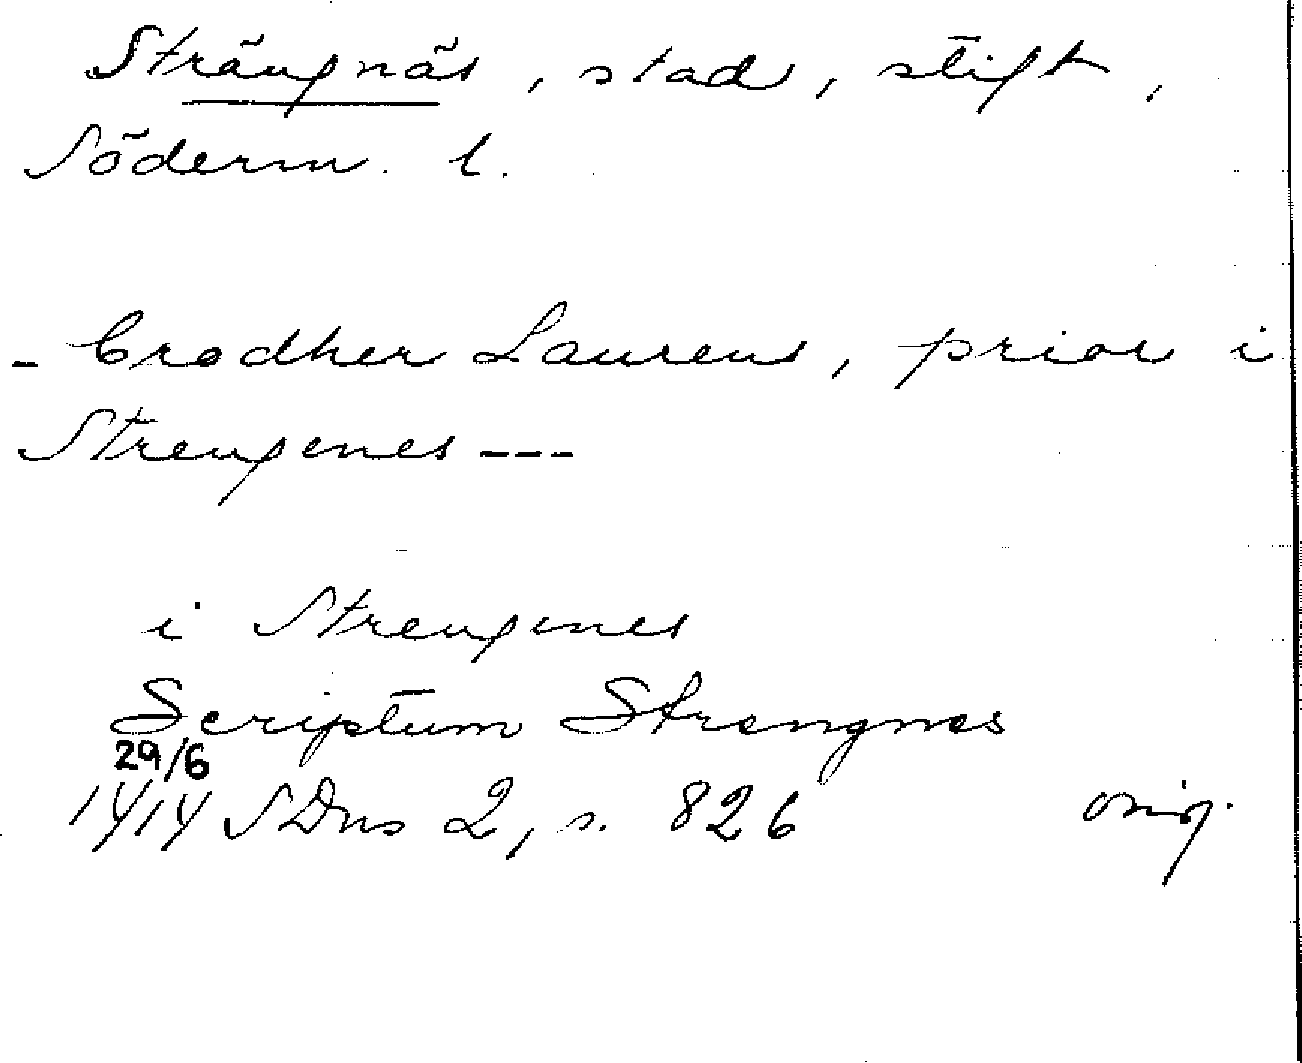 Strängnäs, stad, stift,
Söderm. l.
- Brodher Laurens, prior i
Strengenes ---
i Strengenes
Scriptum Strengnes
29/6
1414 SDns 2, s. 826 orig.